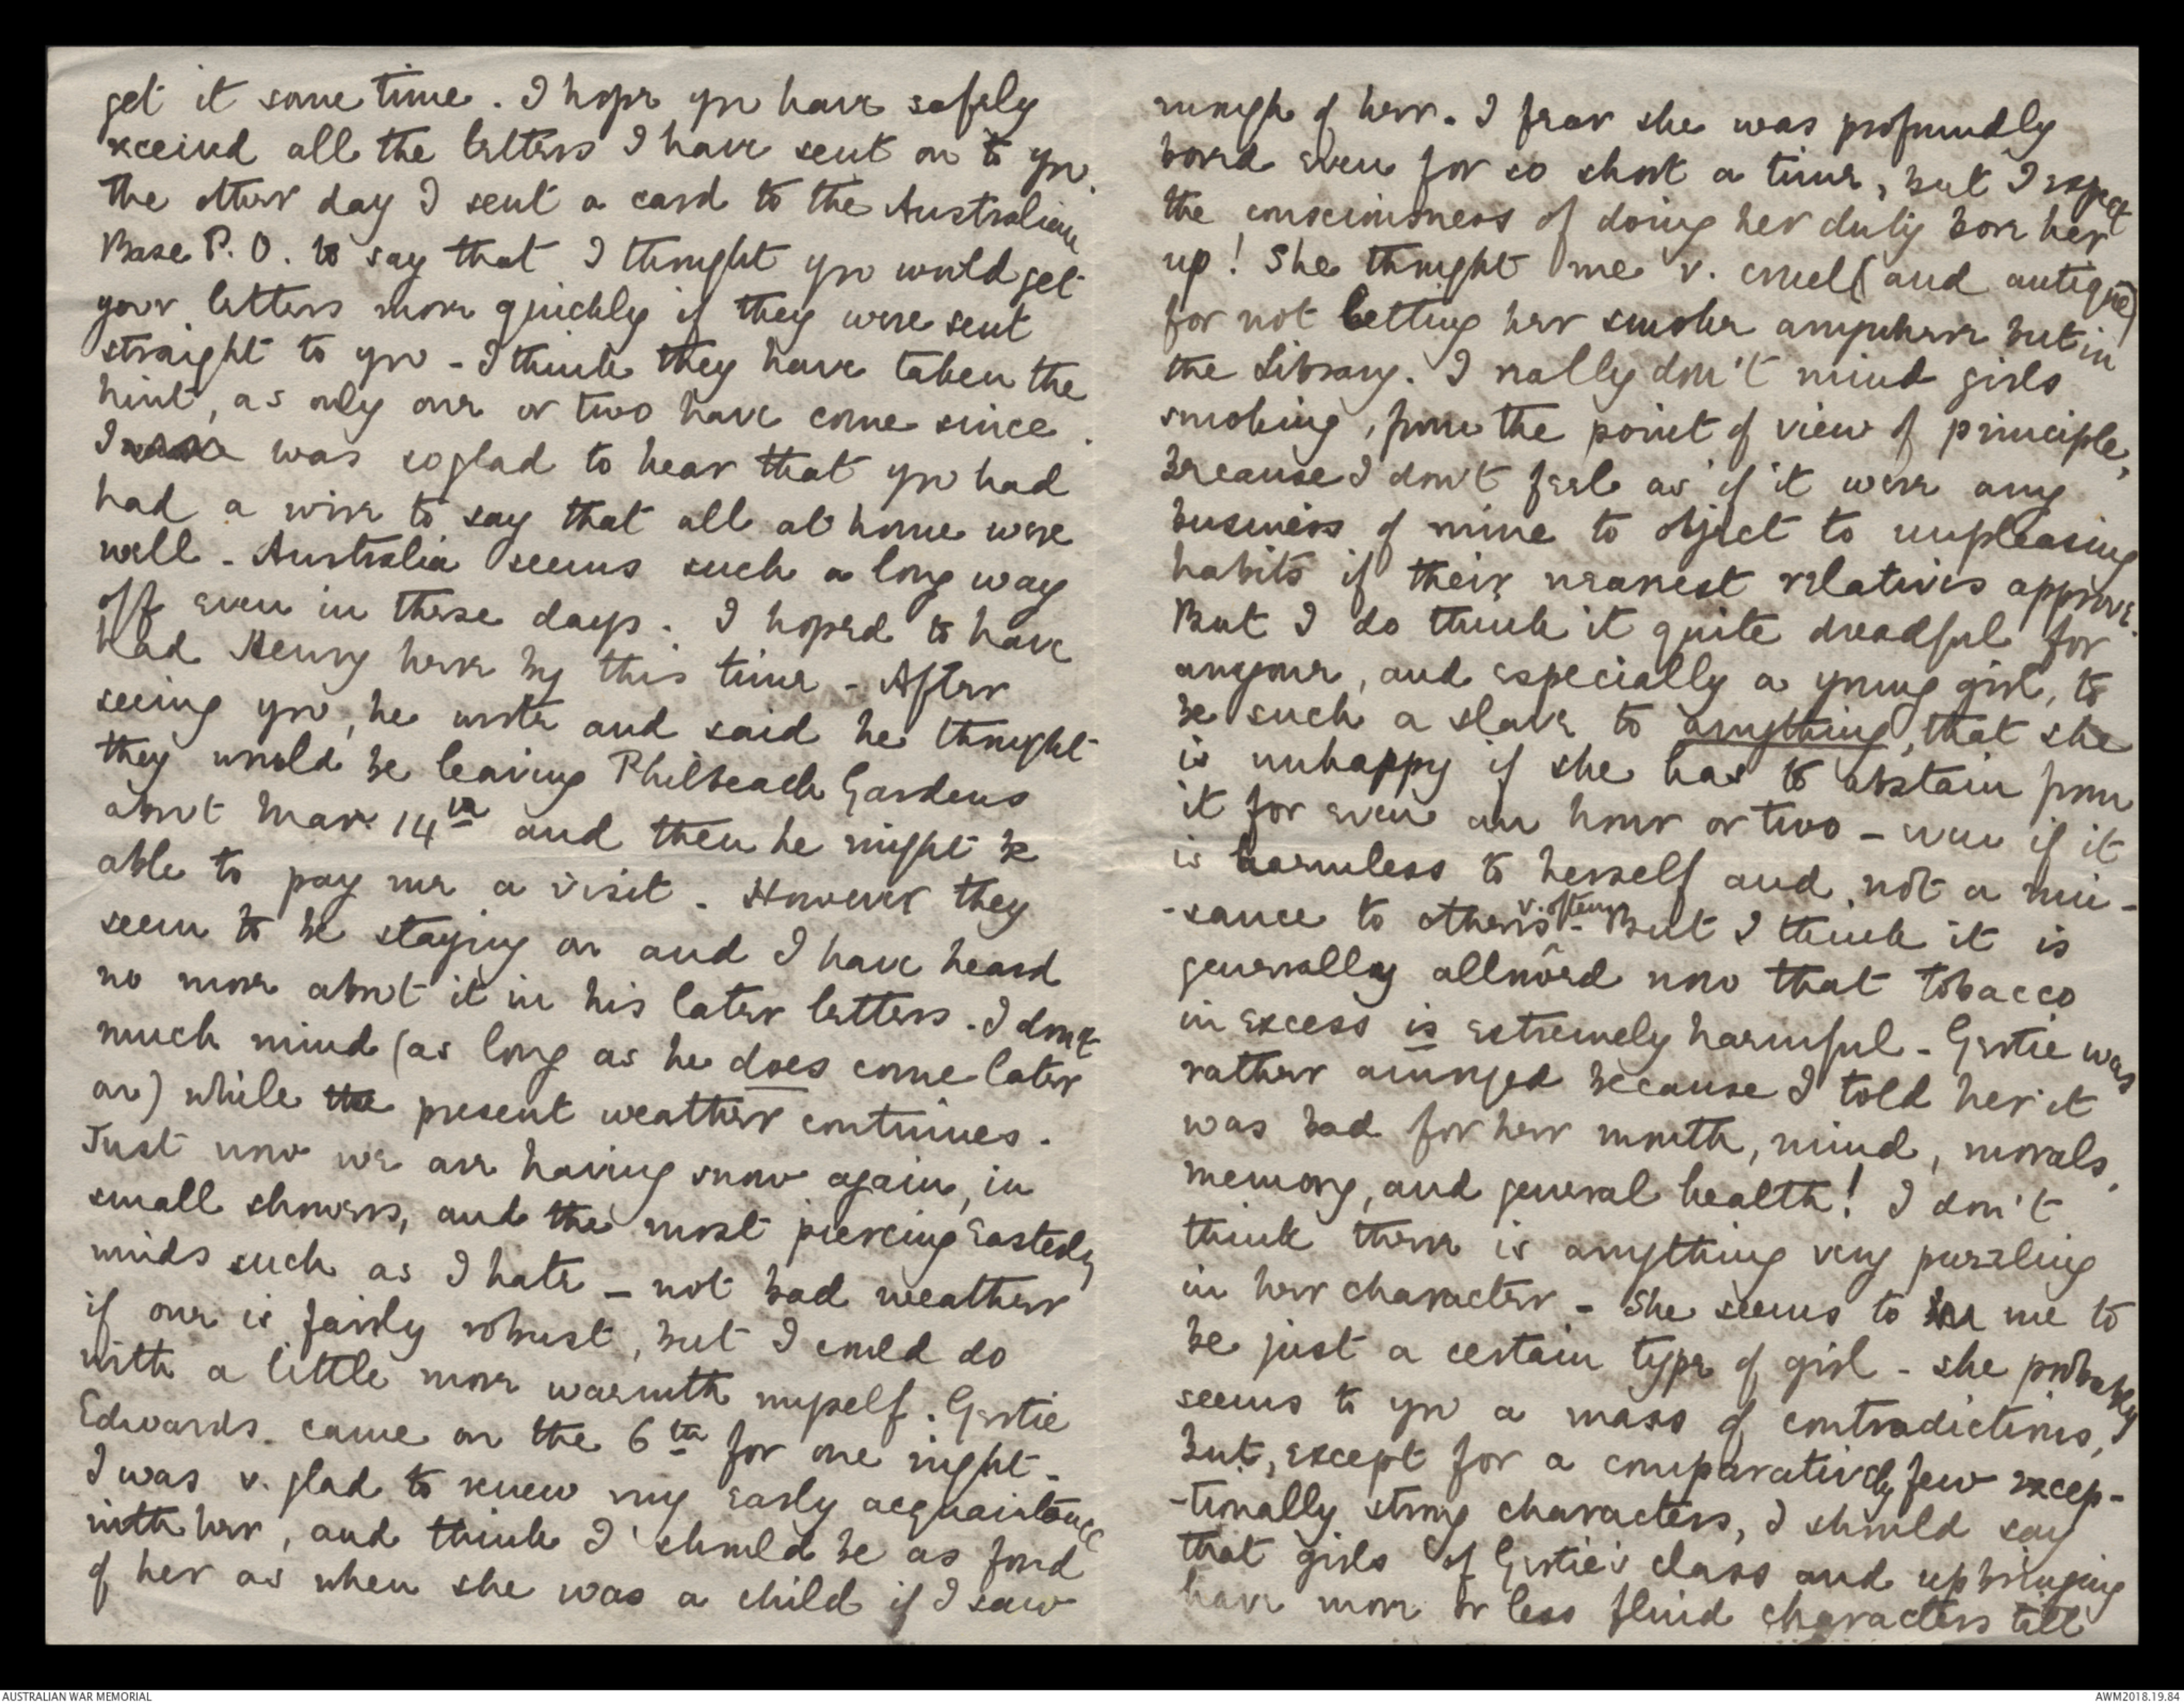 get it some time. I hope you have safely
received all the letters I have sent on to you.
The other day I sent a card to the Australian
Base P.O. to say that I thought you would get
your letters more quickly if they were sent
straight to you - I think they have taken the
hint, as only one or two have come since.
I was so glad to hear that you had
had a wire to say that all at home were
well - Australia seems such a long way
off even in these days. I hoped to have
had Henry here by this time - After
seeing you, he wrote and said he thought
they would be leaving Philbeach Gardens
about Mar. 14th and then he might be
able to pay me a visit. However they
seem to be staying on and I have heard
no more about it in his later letters. I don't
much mind (as long as he does come later
on) while the present weather continues.
Just now we are having snow again, in
small showers, and the most piercing Easterly
winds such as I hate - not bad weather
if one is fairly robust, but I could do
with a little more warmth myself. Gertie
Edwards. came on the 6th for one night -
I was v. glad to renew my early acquaintance
with her, and think I should be as fond
of her as when she was a child if I saw
enough of her. I fear she was profoundly
bored even for so short a time, but I expect
the consciousness of doing her duty bore her
up! She thought me v. cruel (and antique)
for not letting her smoke anywhere but in
the Library. I really don't mind girls
smoking, from the point of view of principle,
because I don't feel as if it were any
business of mine to object to unpleasing
habits if their nearest relatives approve.
But I do think it quite dreadful for
anyone, and especially a young girl, to
be such a slave to anything, that she
is unhappy if she has to abstain from
it for even an hour or two - even if it
is harmless to herself and not a nui-
-sance to others v. often - But I think it is
generally allowed now that tobacco
in excess is extremely harmful - Gertie was
rather annoyed because I told her it
was bad for her mouth, mind, morals,
memory, and general health! I don't
think there is anything very puzzling
in her character - She seems to me to
be just a certain type of girl - she probably
seems to you a mass of contradictions,
but, except for a comparatively few excep-
-tionally strong characters, I should say
that girls of Gertie's class and upbringing
have more or less fluid characters till
AUSTRALIAN WAR MEMORIAL
AWM2018.19.84